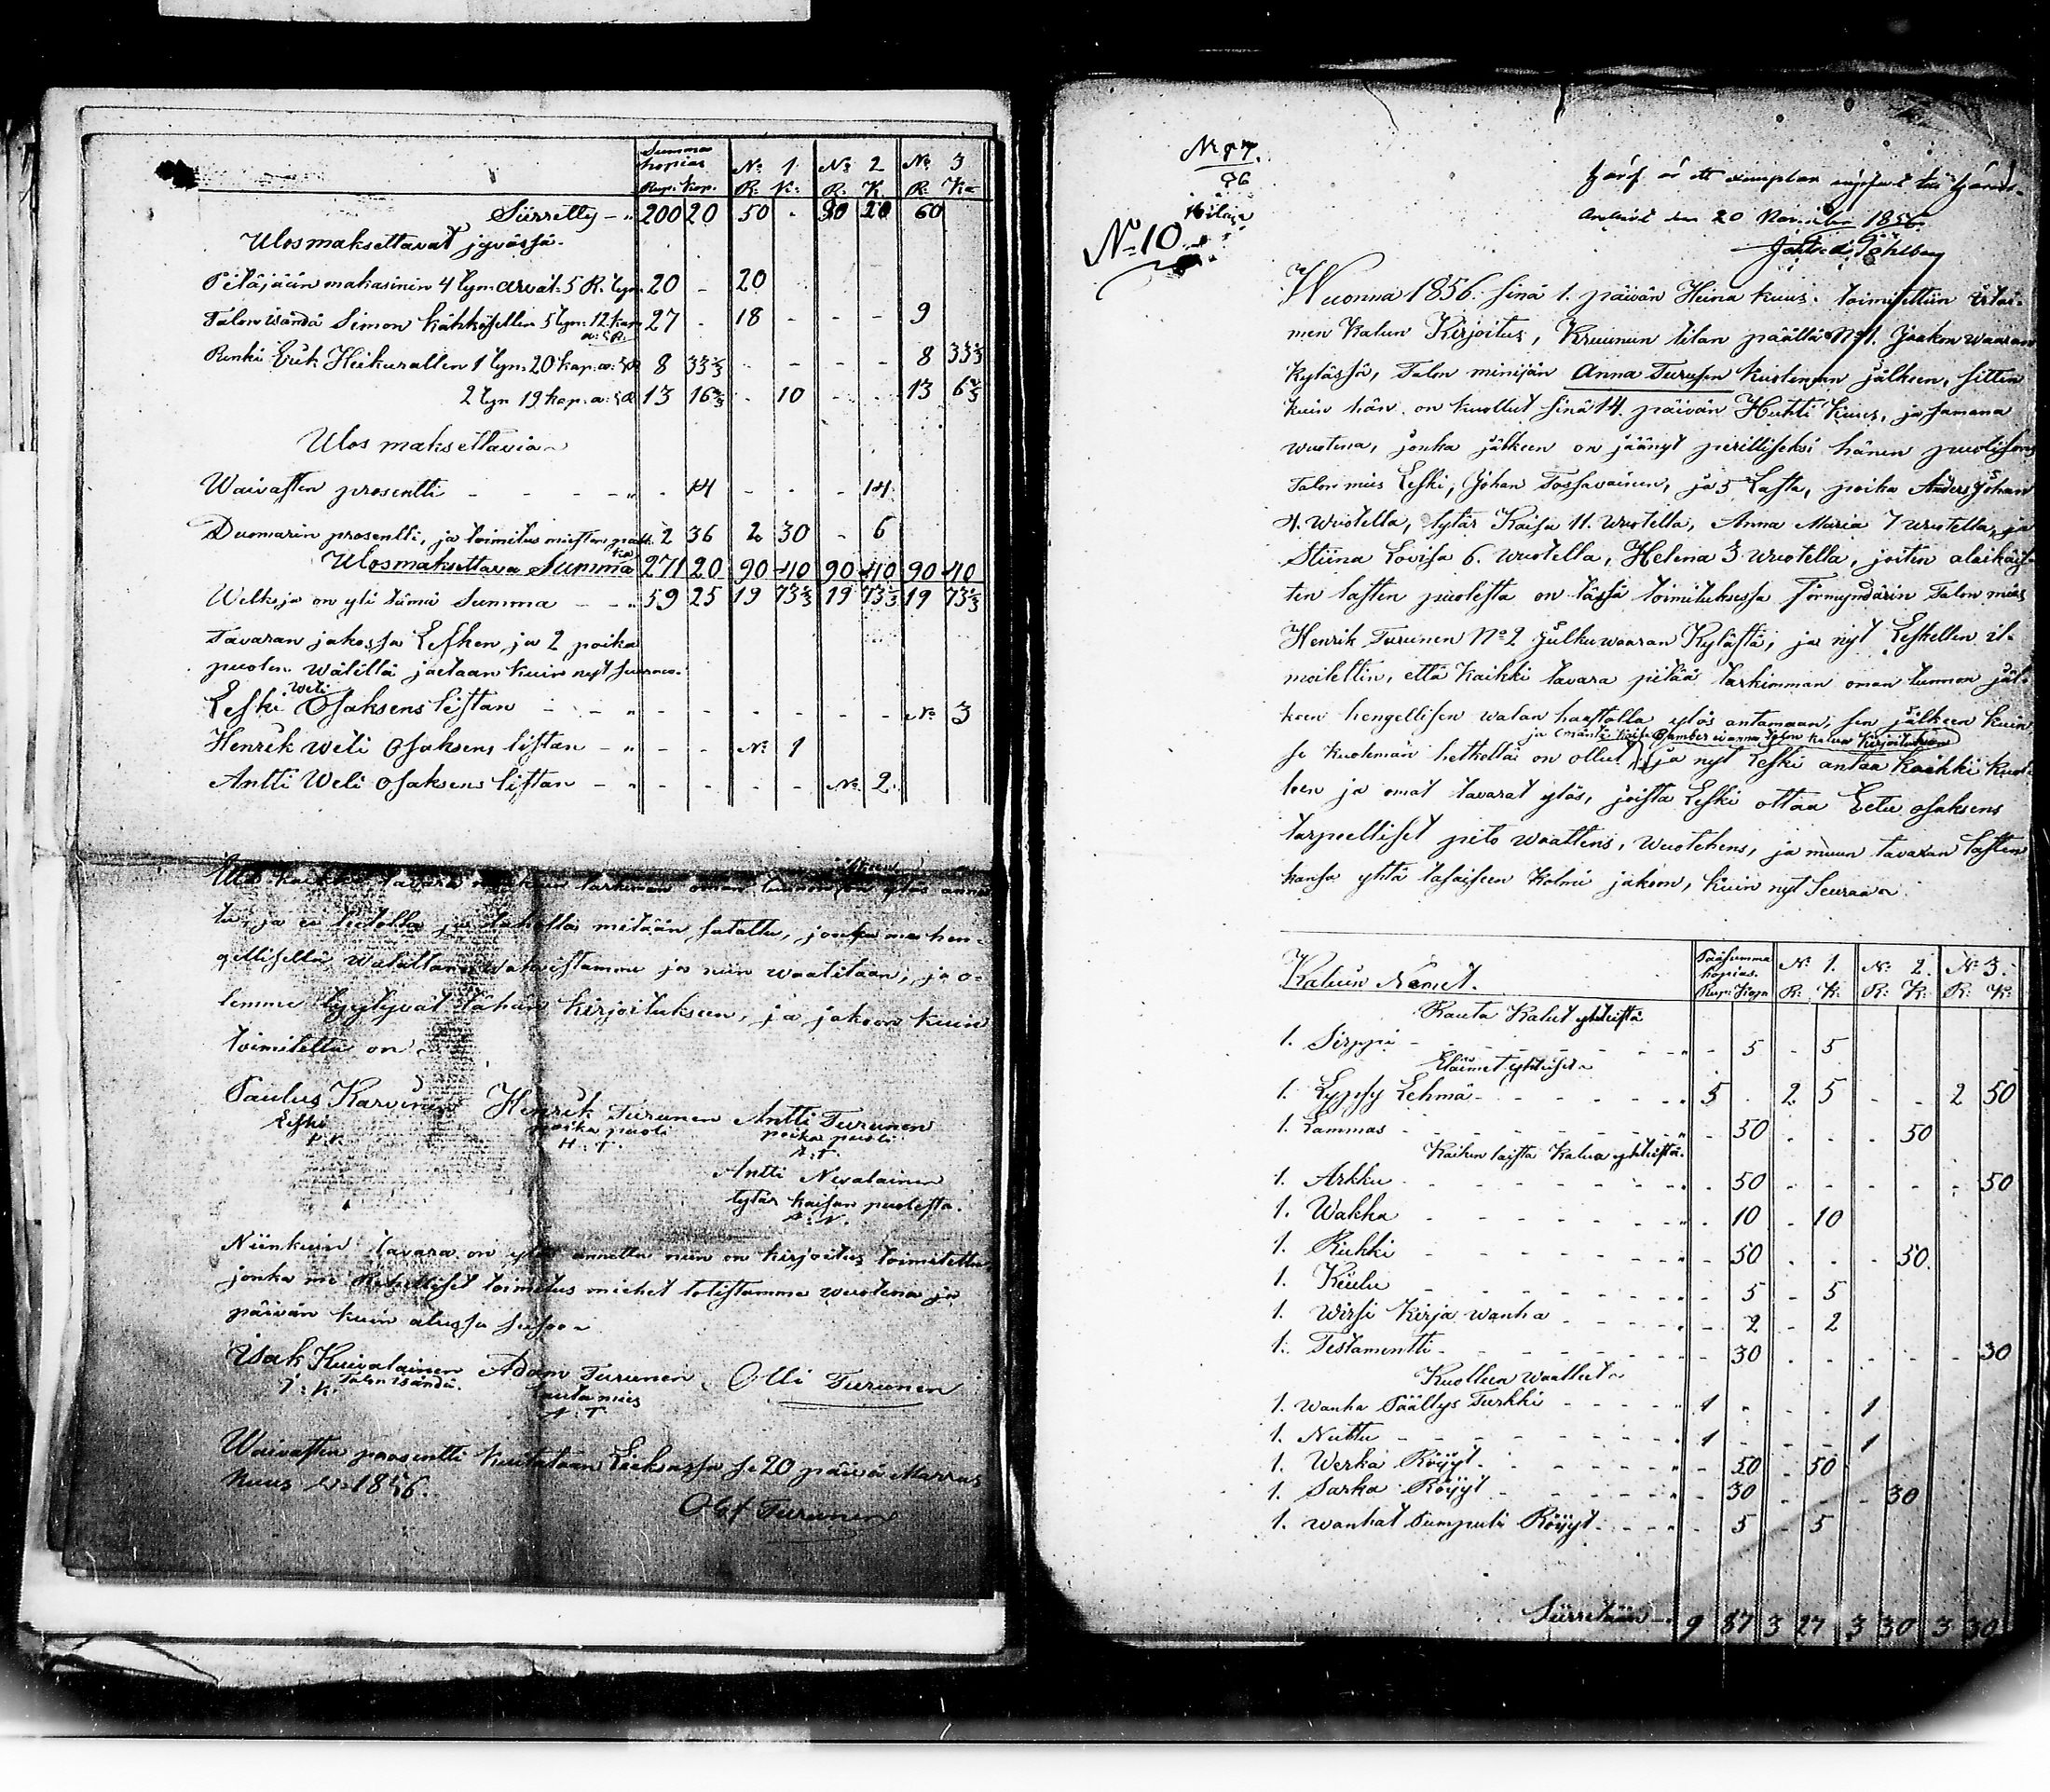 Summa
kopias N:o 1 N:o 2 N:o 3
Rup: Kop. R: K: R: K R: K:
Siirretty - " 200 20 50 - 90 20 60
Ulosmaksettavat jyvässä.
Pitäjään makasiniin 4 tyn: arvat: 5 R. tyn. 20 - 20
Talon isändä Simon Kähkösellen 5 tyn: 12 kap 27 - 18 - - - 9
a: 5 R.
Renki Erik Heikurallen 1 tyn: 20 kap. a: 5 R 8 33 1/3 - - - - 8 33 1/3
2 tyn 19 kap. a: 5 R 13 16 2/3 - 10 - - 13 6 2/3
Ulos maksettavia
Waivasten prosentti - - - - " - 14 - - - 14
Duomarin prosentti, ja toimitus miesten palk 2 36 2 30 - 6
ka
Ulosmaksettava Summa 271 20 90 40 90 40 90 40
Welkoja on yli tämä Summa - - " 59 25 19 73 1/3 19 73 1/3 19 73 1/3
Tavaran jakossa Lesken ja 2 poika
puolen wälillä jaetaan kuin nyt seuraa.
Weli
Leski Osaksens listan - - " - - - - - - N:o 3
Henrik weli osaksens listan - " - - N:o 1
Antti Weli osaksens listan - " - - - - N:o 2.
kaikki tavara tarkiman oman tunnon ylös annet
tu, ja ei tiedolla ja tahdolla mitään salattu, jonka me hen-
gellisellä walallamme wahvistamme jos niin waaditaan, ja o-
lemme tyytyvät tähän kirjoitukseen, ja jakoon kuin
toimitettu on
Paulus Karvinen Henrik Turunen Antti Turunen
Leski poika puoli poika puoli
P. K. H. T. A. T.
Antti Nevalainen
tytär kaisan puolesta.
A. N.
Niinkuin tavara on ylös annettu niin on kirjoitus toimitettu,
jonka me Rehelliset toimitus miehet totistamme wuotena ja
päivän kuin alussa seisoo
Isak Kuivalainen Adam Turunen Olli Turunen
Talon isändä. Lautamies
I. K. A. T.
Waivasten prosentti kuitataan Lieksassa se 20 päivä Marras
kuus w: 1856.
Olof Turunen
N:o 10
häraf är ett exemplar
den 20 November 1856.
Wuonna 1856. sinä 1. päivän Heina kuus. toimitettiin irtai-
men Kalun Kirjoitus, Kruunun tilan päällä N:o 1. Jaakonwaaran
Kylässä, Talon miniján Anna Turusen kuoleman jälkeen, sitten
kuin hän on kuollut sinä 14. päivän Huhti kuus, ja samana
wuotena, jonka jälkeen on jäänyt perilliseksi hänen puolisons
Talon mies Leski, Johan Tossavainen, ja 5 Lasta, poika Anders Johan
4. wuotella, tytär Kaisa 11. wuotella, Anna Maria 7 wuotella, ja
Stiina Lovisa 6. wuotella, Helena 3 wuotella, joiten alaikäis-
ten lasten puolesta on tässä toimituksessa Förmyndärin Talon mies
Henrik Turunen N:o 2 Julkuwaaran Kylästä, ja nyt Leskellen il-
moitettiin, että kaikki tavara pitää tarkimman oman tunnon jäl-
keen hengellisen walan haastolla ylös antamaan, sen jälkeen kuin
ja emäntä talon kalun kirjoituksen
se kuoleman hetkellä on ollut, ja nyt Leski antaa kaikki kuol-
leen ja omat tavarat ylös, joista Leski ottaa Eetu osaksens
tarpeelliset pito waattens, wuotehens, ja muun tavaran lasten
kansa yhtä tasaiseen kolmi jakoon, kuin nyt Seuraa
Kaluin Nämet. Pääsumma
kopias. N:o 1. N:o 2. N:o 3.
Rup: Kopn R: K: R: K: R: K:
Rauta Kalut yhteistä
1. Sirppi - - - - - " - 5 - 5
Eläimet yhteiset
1. Lypsy Lehmä - - - - - " 5 - 2 5 - - 2 50
1. Lammas - - - - - " - 50 - - - 50
Kaiken laista Kalua yhteistä.
1. Arkku - - - - - " - 50 - - - - - 50
1. Wakka - - - - - " - 10 - 10
1. Rukki - - - - - " - 50 - - - 50.
1. Kiulu - - - - - " - 5 - 5
1. Wirsi Kirja wanha - - - - " - 2 - 2
1. Testamentti - - - - " - 30 - - - - - 30
Kuolleen Waattet
1. Wanha Päällys Turkki - - - - " 1 - - - 1
1. Nuttu - - - - - " 1 - - - 1
1. Werka Röijyt - - - - " - 50 - 50
1. Sarka Röijyt - - - - " - 30 - - - 30
1. Wanhat Pumpuli Röijyt - - - - " - 5 - 5
Siirretään - " 9 87 3 27 3 30 3 30